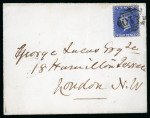 George Lucas Esqre
18 Hamilton Terrace
London N.W